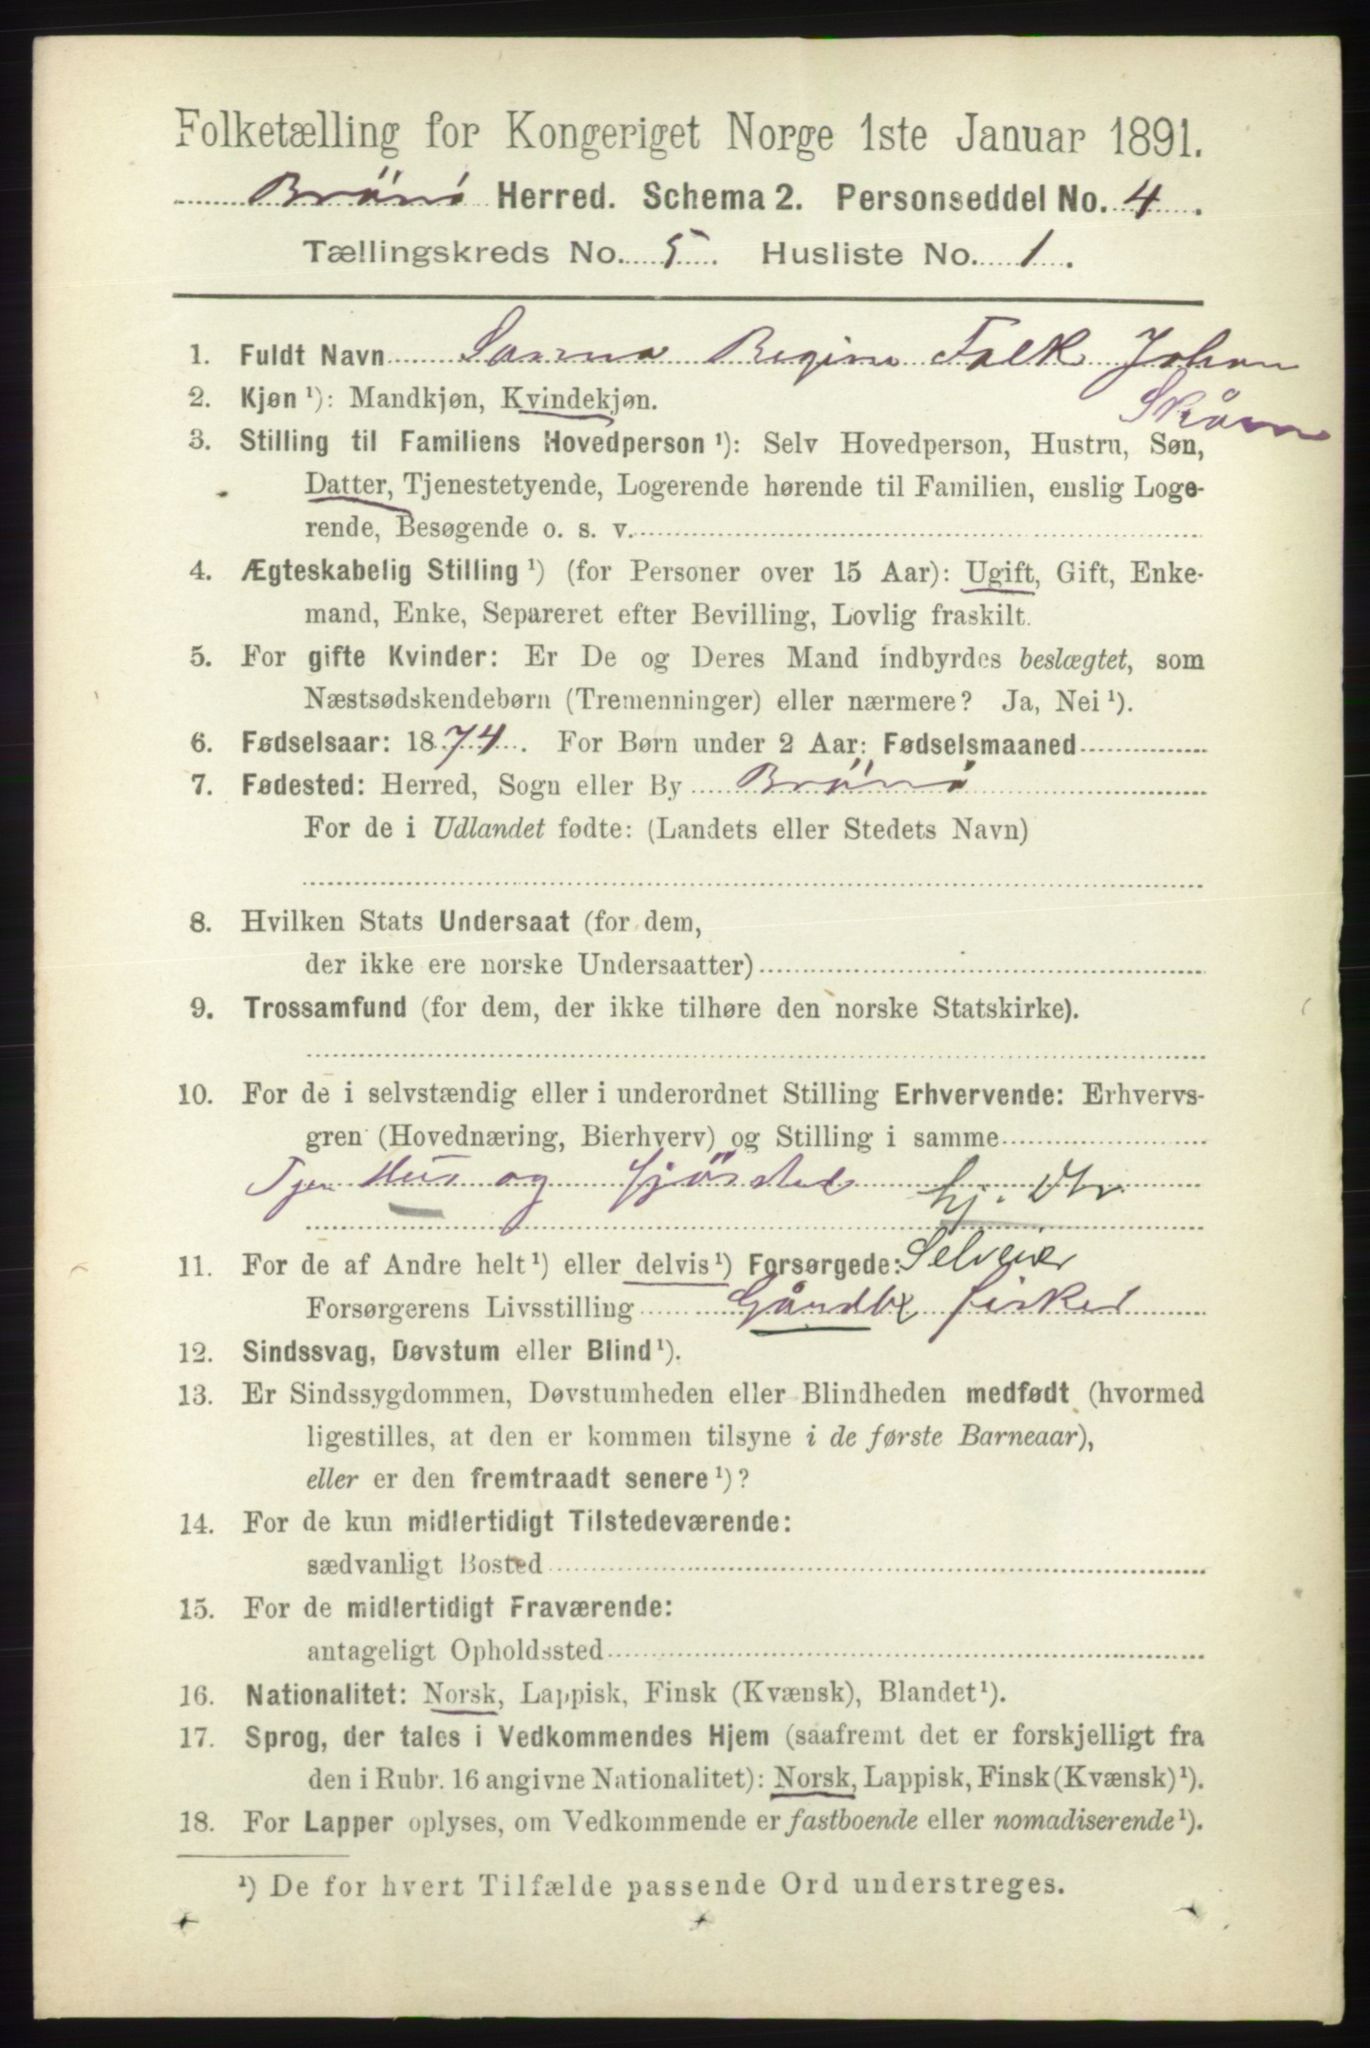 Folketælling for Kongeriget Norge 1ste Januar 1891.
Brönö Herred. Schema 2. Personseddel No. 4.
Tællingskreds No. 5. Husliste No. 1.
1. Fuldt Navn Sanna Regine Falk Johan
2. Kjøn ¹): Mandkjøn, Kvindekjøn.
3. Stilling til Familiens Hovedperson ¹): Selv Hovedperson, Hustru, Søn,
Datter, Tjenestetyende, Logerende hørende til Familien, enslig Loge-
rende, Besøgende o. s. v.
4. Ægteskabelig Stilling ¹) (for Personer over 15 Aar): Ugift, Gift, Enke-
mand, Enke, Separeret efter Bevilling, Lovlig fraskilt.
5. For gifte Kvinder: Er De og Deres Mand indbyrdes beslægtet, som
Næstsødskendebørn (Tremenninger) eller nærmere? Ja, Nei ¹).
6. Fødselsaar: 1874. For Børn under 2 Aar: Fødselsmaaned
7. Fødested: Herred, Sogn eller By Brönö
For de i Udlandet fødte: (Landets eller Stedets Navn)
8. Hvilken Stats Undersaat (for dem,
der ikke ere norske Undersaatter)
9. Trossamfund (for dem, der ikke tilhøre den norske Statskirke).
10. For de i selvstændig eller i underordnet Stilling Erhvervende: Erhvervs-
gren (Hovednæring, Bierhverv) og Stilling i samme
Tjen Hus og fjöstel hj. Dtr
11. For de af Andre helt ¹) eller delvis ¹) Forsørgede: Selveier
Forsørgerens Livsstilling Gårdb fisker
12. Sindssvag, Døvstum eller Blind ¹).
13. Er Sindssygdommen, Døvstumheden eller Blindheden medfødt (hvormed
ligestilles, at den er kommen tilsyne i de første Barneaar),
eller er den fremtraadt senere ¹)?
14. For de kun midlertidigt Tilstedeværende:
sædvanligt Bosted
15. For de midlertidigt Fraværende:
antageligt Opholdssted
16. Nationalitet: Norsk, Lappisk, Finsk (Kvænsk), Blandet ¹).
17. Sprog, der tales i Vedkommendes Hjem (saafremt det er forskjelligt fra
den i Rubr. 16 angivne Nationalitet): Norsk, Lappisk, Finsk (Kvænsk) ¹).
18. For Lapper oplyses, om Vedkommende er fastboende eller nomadiserende ¹).
¹) De for hvert Tilfælde passende Ord understreges.